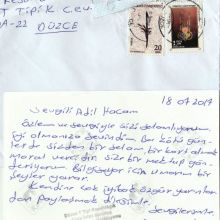 T TİPİK C.EV.
A-22 DÜZCE
20
18.07.2017
Sevgili Adil Hocam
Özlem ve sevgiyle sizi selamlıyorum.
İlgi olmanıza sevindim. Bu kötü gün-
lerde sizden bir selam, bir kart almak
moral vericidir. Size bir mektup gön-
deriyorum. Bilgisayar için umarım bir
şeyler yarar.
Kendine çok iyi bak özgür yarınlar
dan paylaşmak dileğimle.
Sevgilerimle